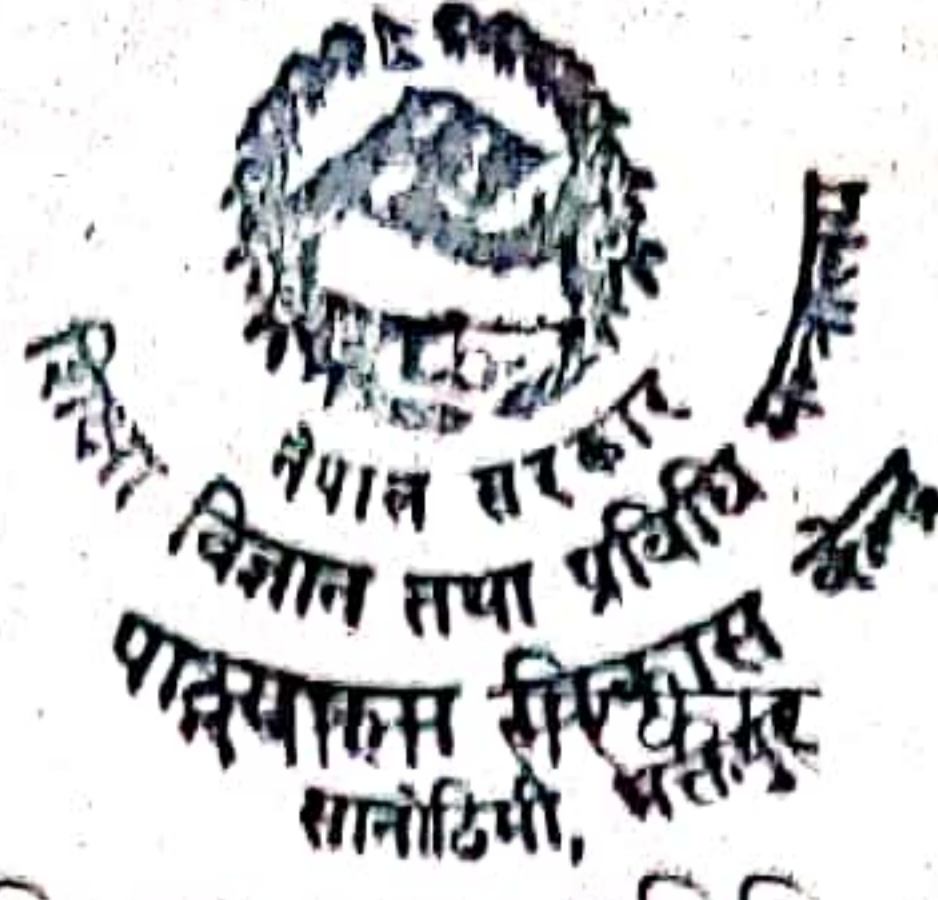 नेपाल सरकार
शिक्षा विज्ञान तथा प्रविधि मन्त्रालय
पाठ्यक्रम विकास केन्द्र
सानोठिमी, भक्तपुर